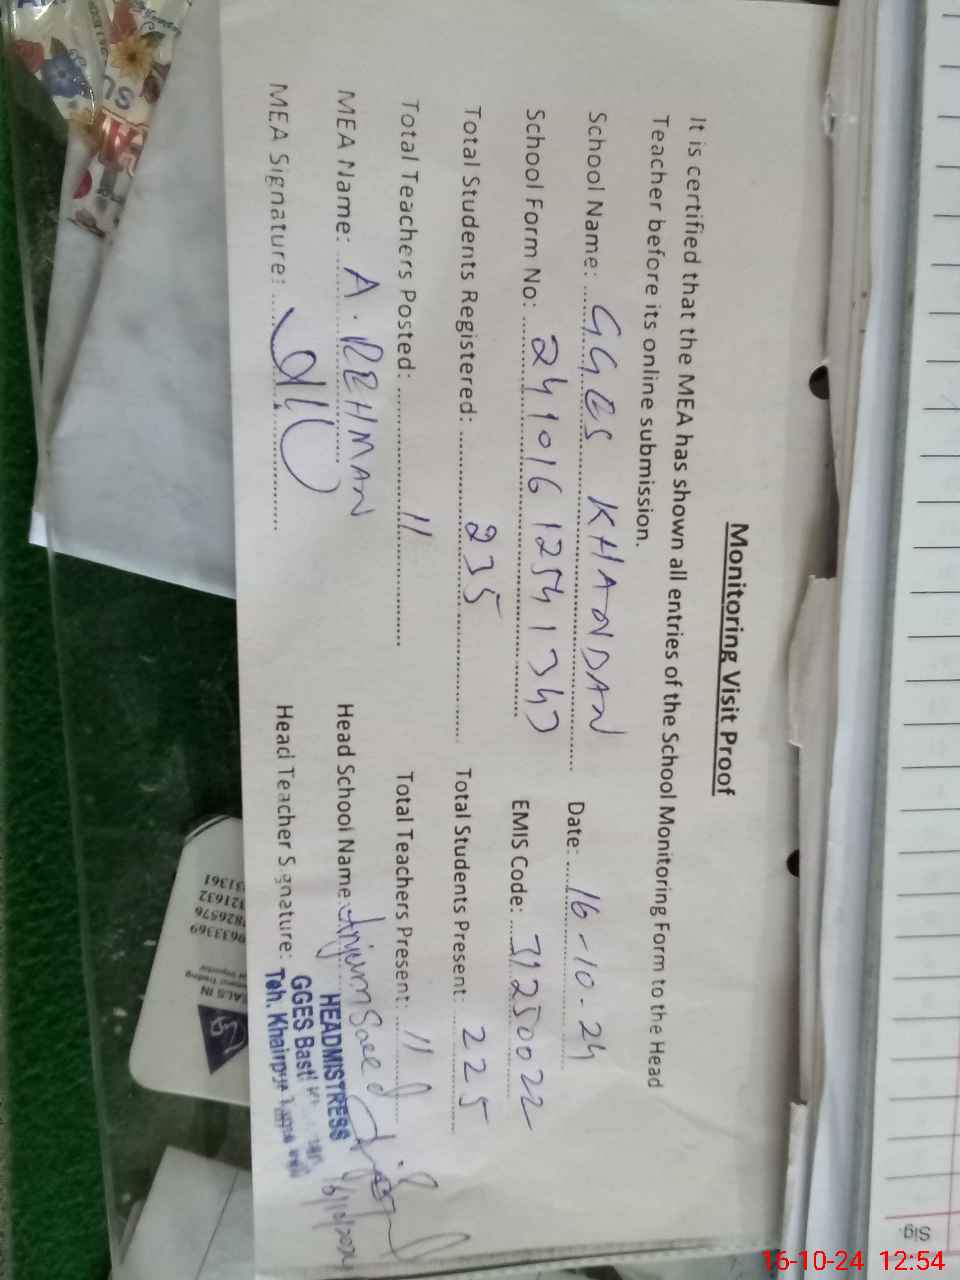 Monitoring Visit Proof
It is certified that the MEA has shown all entries of the School Monitoring Form to the Head
Teacher before its online submission.
School Name: GGES KHANDAN Date: 16-10-24
School Form No: EMIS Code: 31250022
Total Students Registered: 235 Total Students Present: 225
Total Teachers Posted: 11 Total Teachers Present: 11
MEA Name: A. REHMAN Head School Name: Anjum Saeed
MEA Signature: Head Teacher Signature:
HEADMISTRESS
GGES Basti
Teh. Khairpur
16/10/2024
Sig.
16-10-24 12:54